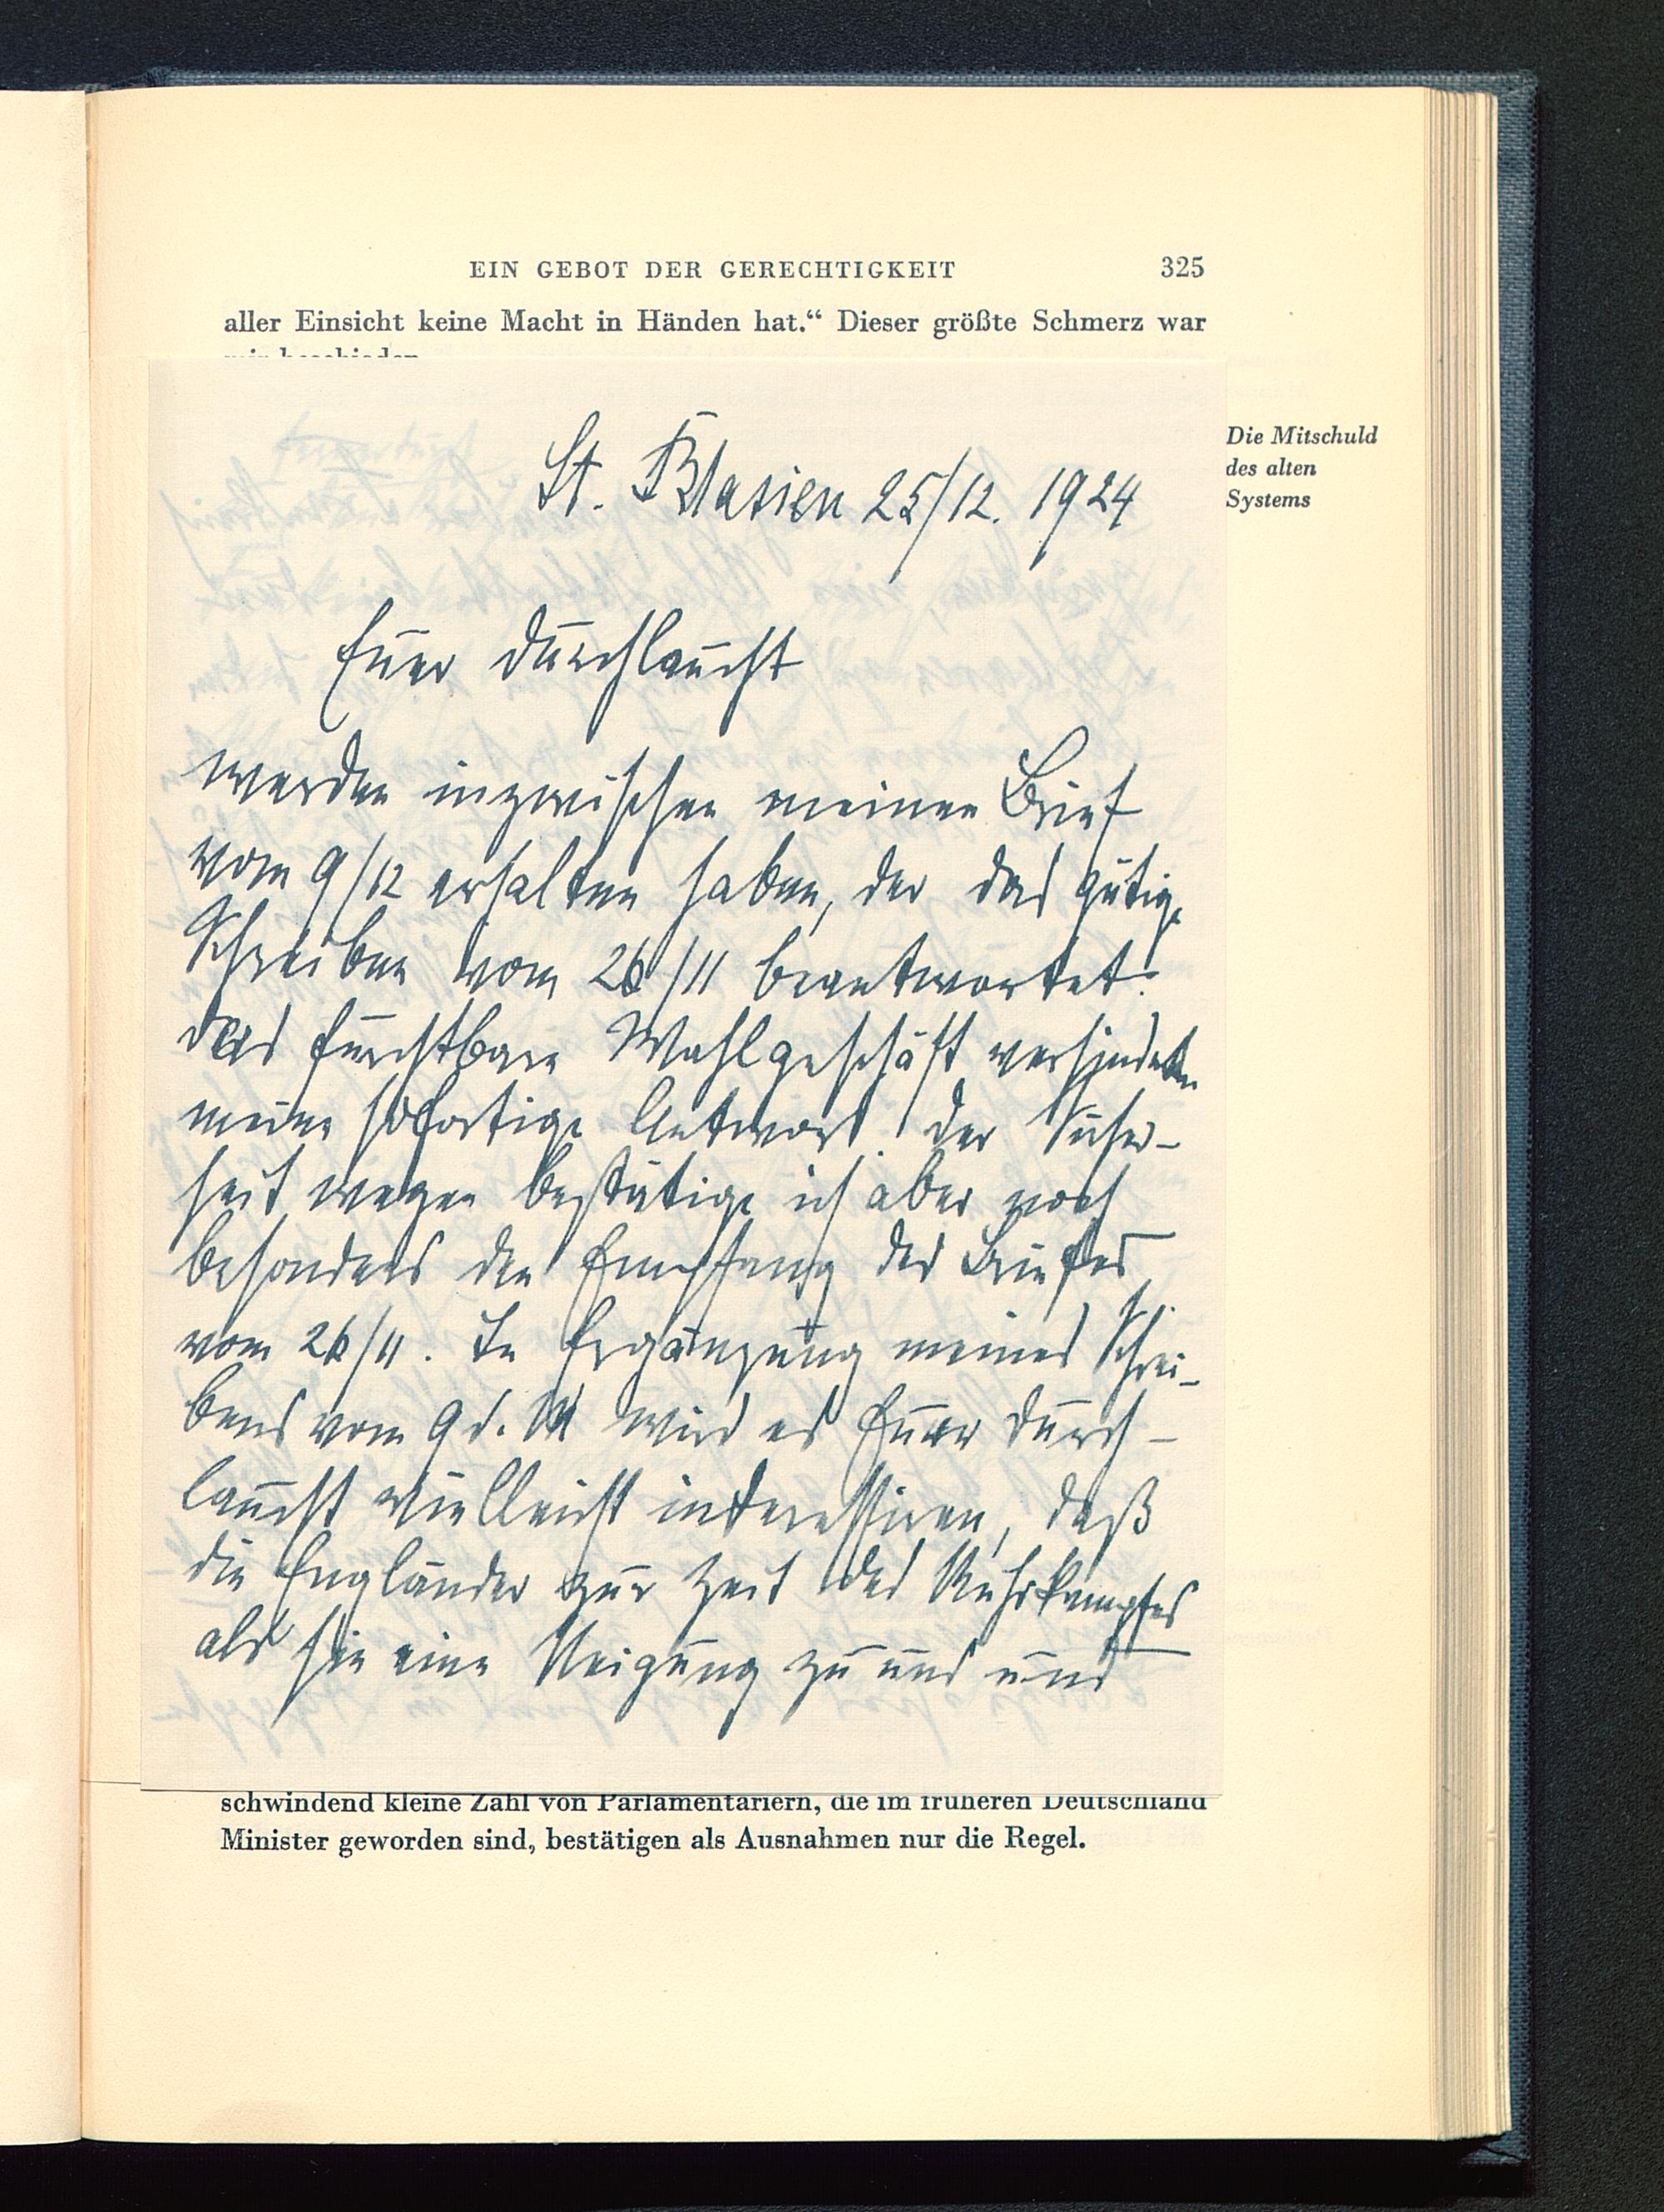 EIN GEBOT DER GERECHTIGKEIT 325
aller Einsicht keine Macht in Händen hat.“ Dieser größte Schmerz war
mir beschieden
Die Mitschuld
des alten
Systems
St. Blasien 25/12. 1924
Euer Durchlaucht
werden inzwischen meinen Brief
vom 9/12 erhalten haben, der das gütige
Schreiben vom 26/11 beantwortet.
Das furchtbare Wahlgeschäft verhinderte
meine sofortige Antwort. Der Sicher-
heit wegen bestätige ich aber noch
besonders den Empfang des Briefes
vom 26/11. In Ergänzung meines Schrei-
bens vom 9 d. M wird es Euer Durch-
laucht vielleicht interessiren, daß
die Engländer zur Zeit des Ruhrkampfes
als sie eine Neigung zu uns uns
schwindend kleine Zahl von Parlamentariern, die im früheren Deutschland
Minister geworden sind, bestätigen als Ausnahmen nur die Regel.